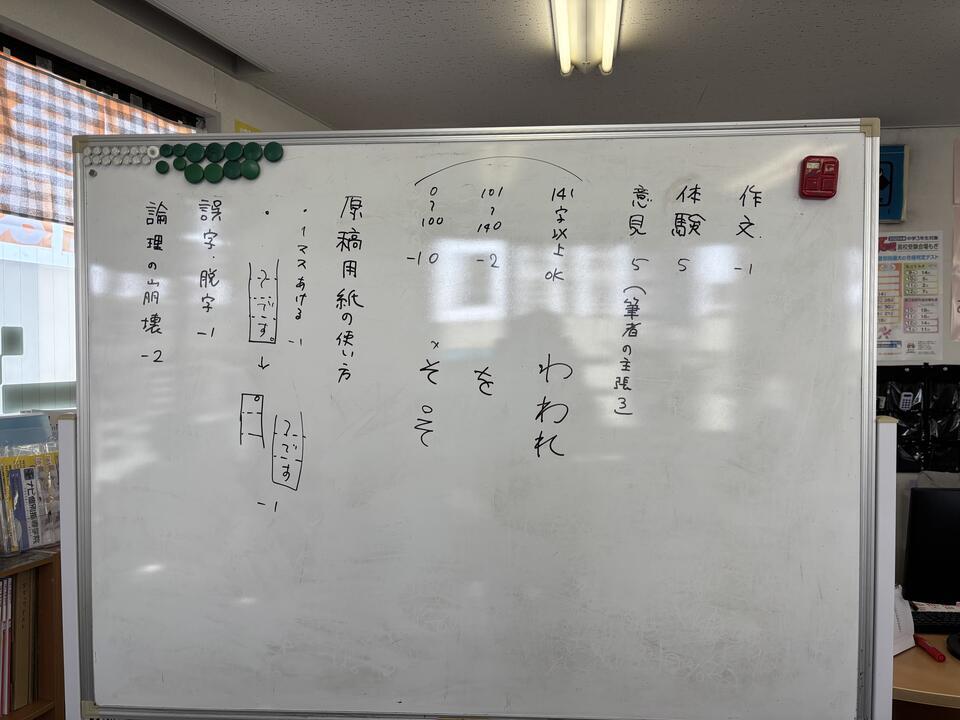 作文 -1
体験 5
意見 5 (筆者の主張3)
141字以上 OK
101〜140 -2
0〜100 -10
わ わ れ
を
×そ ○そ
原稿用紙の使い方
・1マスあける -1
・
てです。
↓
。
てです
-1
誤字・脱字 -1
論理の崩壊 -2
中学3年生対象